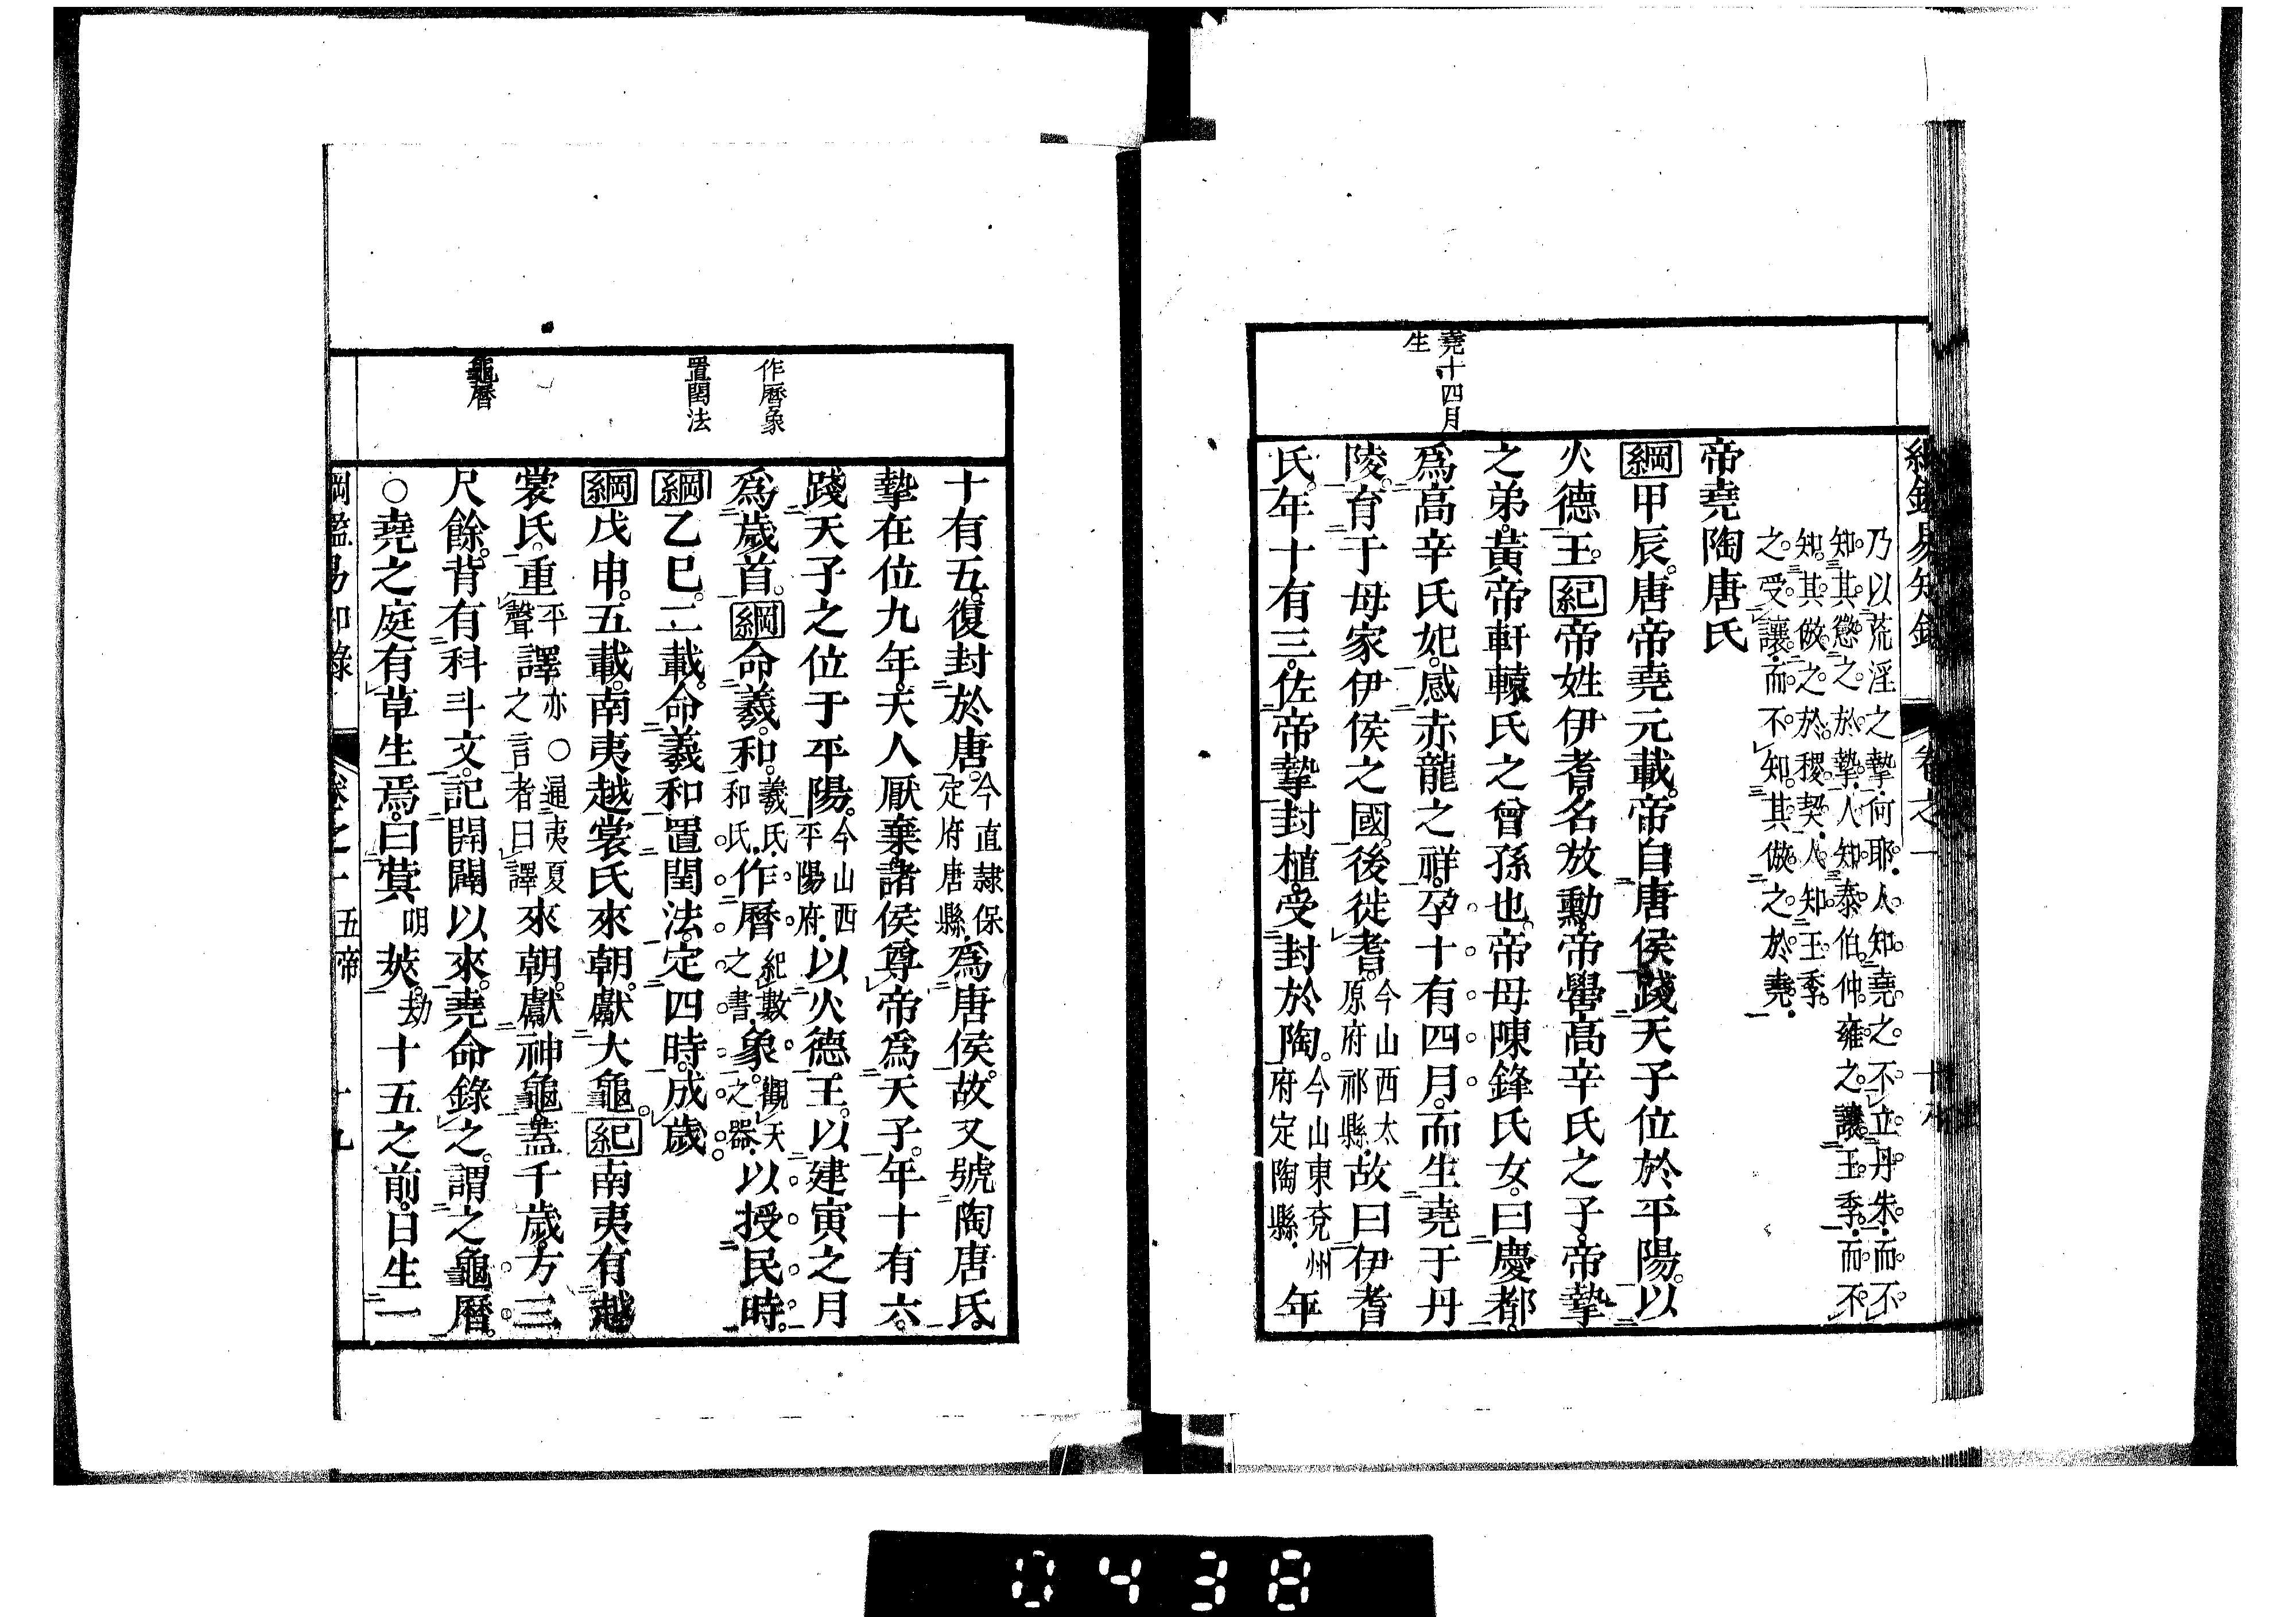 乃以荒淫之摯何耶人知堯之不立丹朱而不
知其愆之於摯人知泰伯仲雍之讓王季而不
知其倣之於稷契人知王季
之受讓而不知其倣之於堯
帝堯陶唐氏
綱甲辰唐帝堯元載帝自唐侯踐天子位於平陽以
火德王紀帝姓伊耆名放勳帝嚳高辛氏之子帝摯
之弟黃帝軒轅氏之曾孫也帝母陳鋒氏女曰慶都
堯十四月
生
爲高辛氏妃感赤龍之祥孕十有四月而生堯于丹
陵育于母家伊侯之國後徙耆今山西太原府祁縣故曰伊耆
氏年十有三佐帝摯封植受封於陶今山東兗州府定陶縣年
十有五復封於唐今直隸保定府唐縣爲唐侯故又號陶唐氏
摯在位九年天人厭棄諸侯尊帝爲天子年十有六
踐天子之位于平陽今山西平陽府以火德王以建寅之月
作曆象
爲歲首綱命羲和羲氏和氏作曆紀數之書象觀天之器以授民時
置閏法
綱乙巳二載命羲和置閏法定四時成歲
綱戊申五載南夷越裳氏來朝獻大龜紀南夷有越
裳氏重平聲譯亦○通夷夏之言者曰譯來朝獻神龜蓋千歲方三
龜曆
尺餘背有科斗文記開闢以來堯命錄之謂之龜曆
○堯之庭有草生焉曰蓂明莢劫十五之前日生一
卷之一 五帝 十九
0438